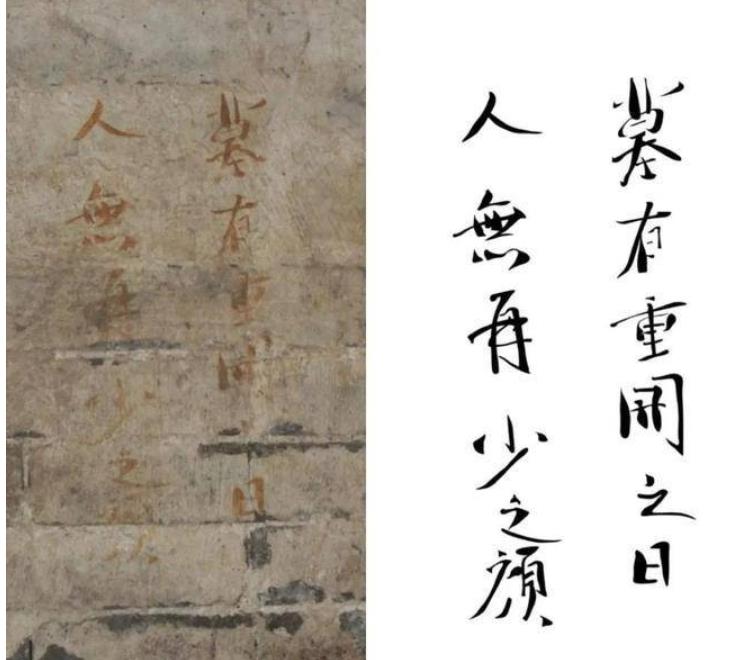 墓有重開之日
人無再少之顔
墓有重開之日
人無再少之顔